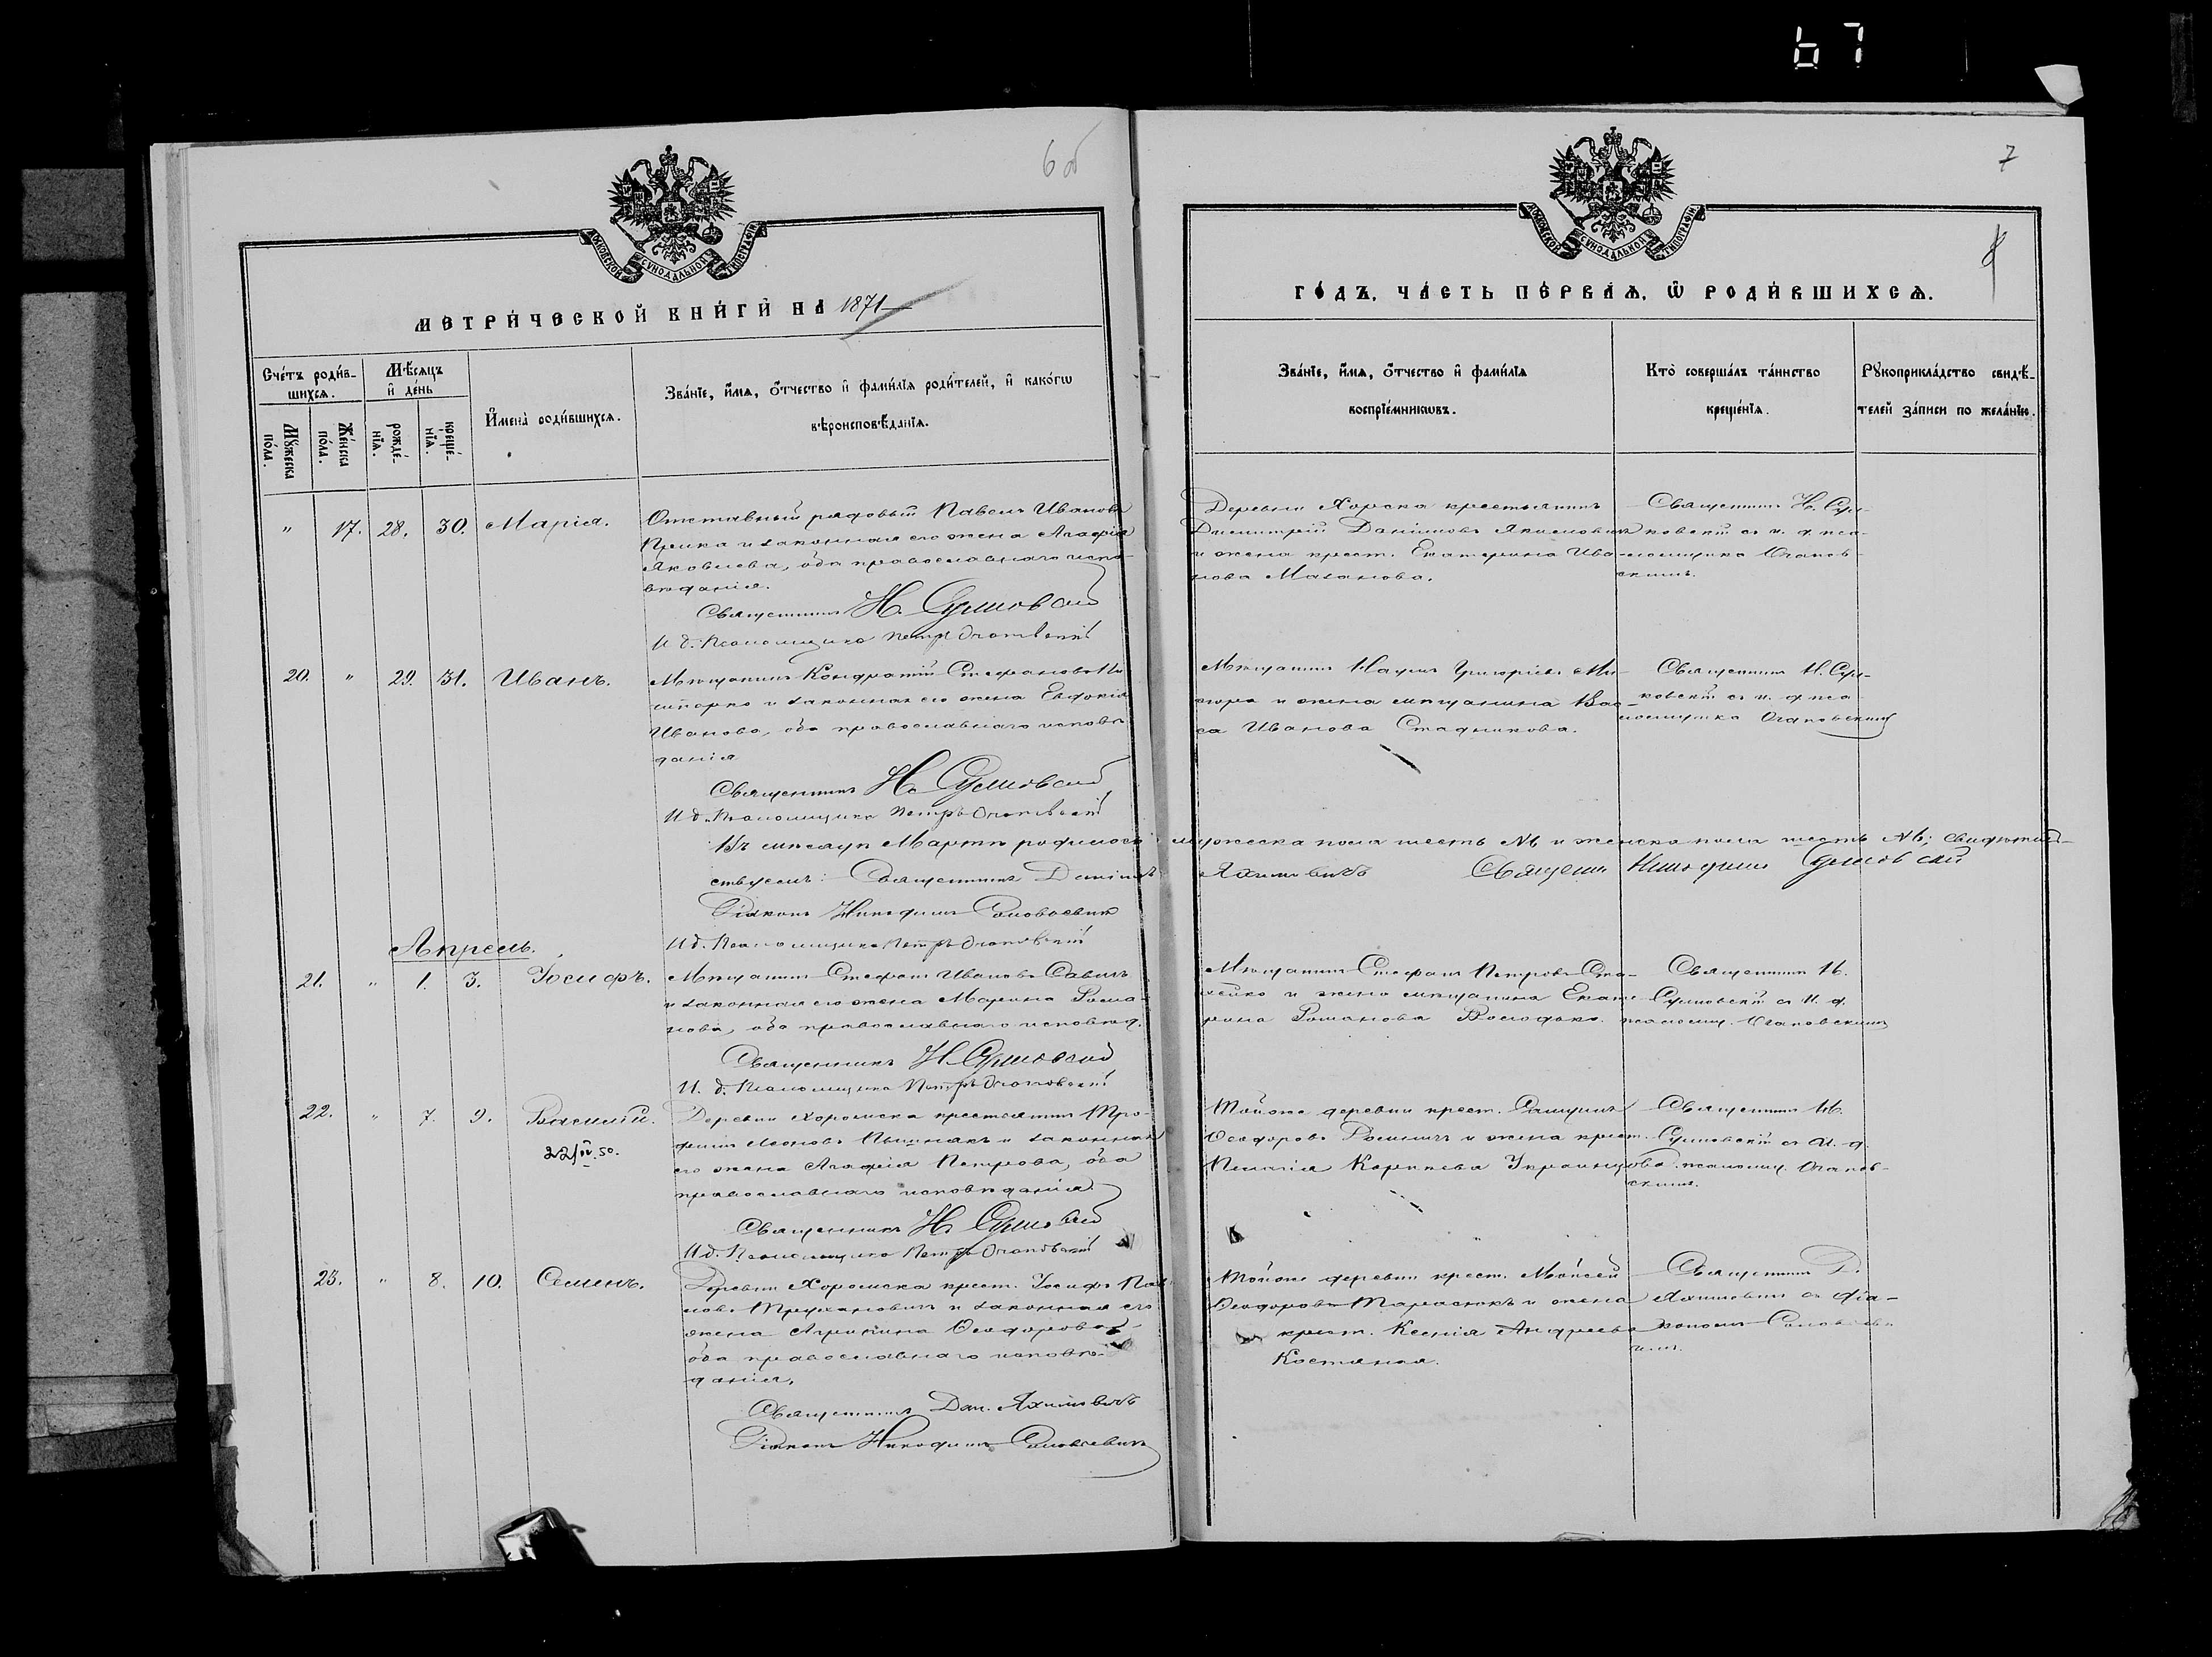 67
6 об
7
8
МОСКОВСКОЙ СѴНОДАЛЬНОЙ ТИПОГРАФІИ
МОСКОВСКОЙ СѴНОДАЛЬНОЙ ТИПОГРАФІИ
МЕТРИ́ЧЕСКОЙ КНИ́ГИ НА 1871
ГО́ДЪ, ЧА́СТЬ ПЕ́РВАѦ, Ѽ РОДИ́ВШИХСѦ.
Сче́тъ роди́в-
шихсѧ.
Мꙋ́жеска по́ла.
Же́нска по́ла.
Мѣ́сѧцъ
и҆ де́нь
рожде́-
нїѧ.
креще́-
нїѧ.
И҆мена̀ роди́вшихсѧ.
Зва́нїе, и҆́мѧ, ѻ҆́тчество и҆ фами́лїѧ роди́телей, и҆ како́гѡ
вѣроисповѣ́данїѧ.
Зва́нїе, и҆́мѧ, ѻ҆́тчество и҆ фами́лїѧ
воспрїе́мникѡвъ.
Кто̀ соверша́лъ та́инство
креще́нїѧ.
Рꙋкоприкла́дство свидѣ́-
телей за́писи по жела́нїю.
" 17. 28. 30. Марія.
Отставный рядовый Павелъ Ивановъ
и законная его жена Агафія
Яковлева, оба православнаго испо-
вѣданія.
Священникъ Н. Сулковскій
И. д. Псаломщика Петръ
Деревни Хорска крестьянинъ
Димитрій Даніиловъ Якимовичъ
и жена крест. Екатерина Ива-
нова Маханова.
Священникъ Н. Сул-
ковскій съ и. д. пса-
ломщика
скимъ.
20. " 29. 31. Иванъ.
Мѣщанинъ Кондратій Стефановъ
и законная его жена Евдокія
Иванова, оба православнаго исповѣ-
данія
Священникъ Н. Сулковскій
И. д. Псаломщика Петръ
Мѣщанинъ Наумъ Григоріевъ
и жена мѣщанина Вас-
са Иванова Стадникова.
Священникъ Н. Сул-
ковскій съ и. д. пса-
ломщика
Въ мѣсяцѣ Мартѣ родилось: мужеска пола шесть №6 и женска пола шесть №6; свидѣтель-
ствуемъ: Священникъ Даніилъ Яхимовичъ Священ. Никодимъ Сулковскій
Діаконъ Никодимъ Соловьевичъ
И. д. Псаломщика Петръ
Апрель.
21. " 1. 3. Іосифъ.
Мѣщанинъ Стефанъ Ивановъ Савичъ
и законная его жена Марина Рома-
нова, оба православнаго исповѣд.
Священникъ Н. Сулковскій
И. д. Псаломщика Петръ
Мѣщанинъ Стефанъ Петровъ Ста-
и жена мѣщанина Екате-
рина Романова Володько.
Священникъ Н.
Сулковскій съ И. д.
псаломщ.
22. " 7. 9. Василій.
22/IV.50.
Деревни Хоромска крестьянинъ Тро-
фимъ Леоновъ и законная
его жена Агафія Петрова, оба
православнаго исповѣданія.
Священникъ Н. Сулковскій
И. д. Псаломщика Петръ
Тойже деревни крест. Самуилъ
Ѳеодоровъ и жена крест.
Пелагія Корнѣева Украинцова.
Священникъ Н.
Сулковскій съ И. д.
псаломщ.
скимъ.
23. " 8. 10. Семенъ.
Деревни Хоромска крест. Іосифъ Пав-
ловъ Трухановичъ и законная его
жена Агрипина Ѳеодорова,
оба православнаго исповѣ-
данія.
Священникъ Дан. Яхимовичъ
Діаконъ Никодимъ Соловьевичъ
Тойже деревни крест. Моисей
Ѳеодоровъ Тарасюкъ и жена
крест. Ксенія Андреева
Костяная.
Священникъ Д.
Яхимовичъ съ діа-
кономъ Соловьеви-
чемъ.